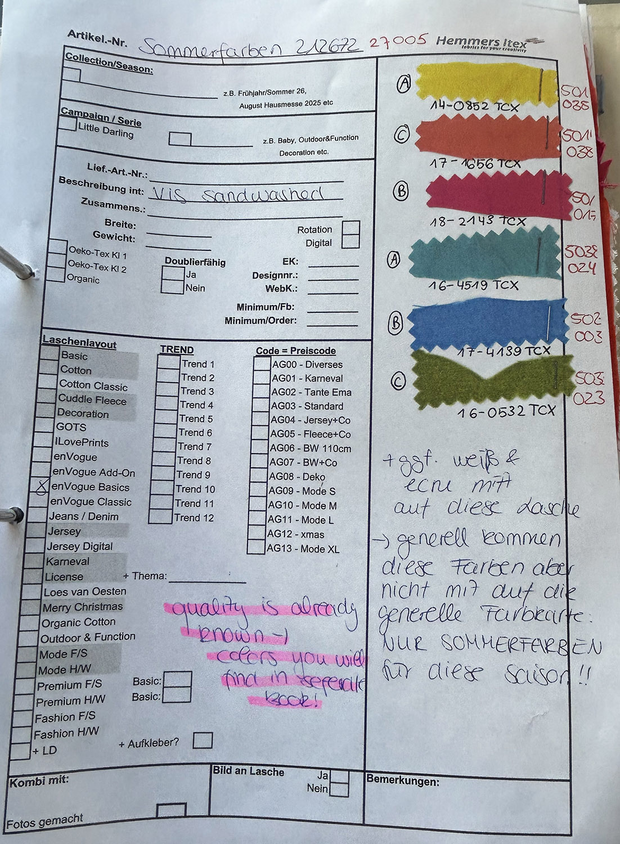 Artikel.-Nr. Sommerfarben 212672 27005 Hemmers Itex
fabrics for your creativity
Collection/Season:
z.B. Frühjahr/Sommer 26,
August Hausmesse 2025 etc
Campaign / Serie
Little Darling
z.B. Baby, Outdoor&Function
Decoration etc.
Lief.-Art.-Nr.:
Beschreibung int: VIS sandwashed
Zusammens.:
Breite:
Gewicht:
Rotation
Digital
Oeko-Tex Kl 1
Oeko-Tex Kl 2
Organic
Doublierfähig
Ja
Nein
EK:
Designnr.:
WebK.:
Minimum/Fb:
Minimum/Order:
Laschenlayout
Basic
Cotton
Cotton Classic
Cuddle Fleece
Decoration
GOTS
ILovePrints
enVogue
enVogue Add-On
X enVogue Basics
enVogue Classic
Jeans / Denim
Jersey
Jersey Digital
Karneval
License
+ Thema:
Loes van Oesten
Merry Christmas
Organic Cotton
Outdoor & Function
Mode F/S
Mode H/W
Premium F/S
Basic:
Premium H/W
Basic:
Fashion F/S
Fashion H/W
+ LD
+ Aufkleber?
TREND
Trend 1
Trend 2
Trend 3
Trend 4
Trend 5
Trend 6
Trend 7
Trend 8
Trend 9
Trend 10
Trend 11
Trend 12
Code = Preiscode
AG00 - Diverses
AG01 - Karneval
AG02 - Tante Ema
AG03 - Standard
AG04 - Jersey+Co
AG05 - Fleece+Co
AG06 - BW 110cm
AG07 - BW+Co
AG08 - Deko
AG09 - Mode S
AG10 - Mode M
AG11 - Mode L
AG12 - xmas
AG13 - Mode XL
quality is already
known →
colors you will
find in seperate
book!
A
14-0852 TCX
501
035
C
17-1656 TCX
501
038
B
18-2143 TCX
501
015
A
16-4519 TCX
503
024
B
17-4139 TCX
502
003
C
16-0532 TCX
503
023
+ ggf. weiß &
ecru mit
auf diese Lasche
→ generell kommen
diese Farben aber
nicht mit auf die
generelle Farbkarte.
NUR SOMMERFARBEN
für diese Saison!!
Kombi mit:
Fotos gemacht
Bild an Lasche
Ja
Nein
Bemerkungen: